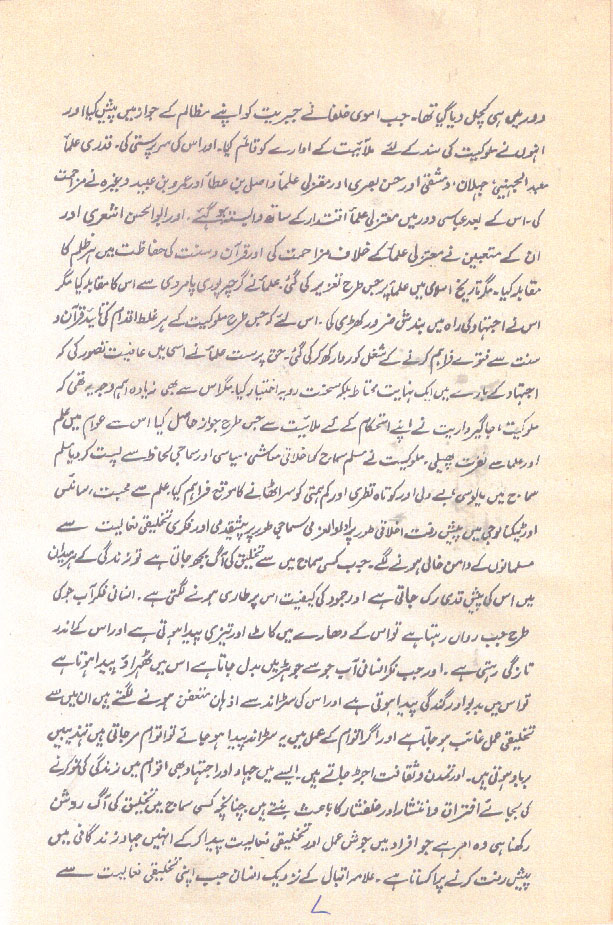 دور میں ہی کچل دیا گیا تھا۔ جب اموی خلفا نے جبریت کو اپنے مظالم کے جواز میں پیش کیا اور
انہوں نے ملوکیت کی سند کے لئے ملائیت کے ادارے کو قائم کیا۔ اور اس کی سرپرستی کی۔ قدری علما
معبد الجہنی، جہلان دمشقی اور حسن بصری اور معتزلی علما واصل بن عطا اور عمرو بن عبید وغیرہ نے مزاحمت
کی۔ اس کے بعد عباسی دور میں معتزلی علما اقتدار کے ساتھ وابستہ ہو گئے۔ اور ابوالحسن اشعری اور
ان کے متبعین نے معتزلی علما کے خلاف مزاحمت کی اور قرآن و سنت کی حفاظت میں ہر ظلم کا
مقابلہ کیا۔ مگر تاریخ اسلامی میں علما پر جس طرح تعزیر کی گئی۔ علما نے گرچہ پوری پامردی سے اس کا مقابلہ کیا مگر
اس نے اجتہاد کی راہ میں بندش ضرور کھڑی کی۔ اس لئے کہ جس طرح ملوکیت کے ہر غلط اقدام کی تائید قرآن و
سنت سے فتوے فراہم کرنے کے شغل کو روا رکھ کر کی گئی۔ حق پرست علما نے اسی میں عافیت تصور کی کہ
اجتہاد کے بارے میں ایک نہایت محتاط بلکہ سخت رویہ اختیار کیا۔ مگر اس سے بھی زیادہ اہم وجہ یہ تھی کہ
ملوکیت، جاگیرداریت نے اپنے استحکام کے لئے ملائیت سے جس طرح جواز حاصل کیا اس سے عوام میں علم
اور علما سے نفرت پھیلی۔ ملوکیت نے مسلم سماج کو اخلاقی معاشی سیاسی اور سماجی لحاظ سے پست کر دیا مسلم
سماج میں مایوسی بے دلی اور کوتاہ نظری اور کم ہمتی کو سر اٹھانے کا موقع فراہم کیا، علم سے محبت، سائنس
اور ٹیکنالوجی میں پیش رفت اخلاقی طور پر اولوالعزمی سماجی طور پر پیشقدمی اور فکری تخلیقی فعالیت سے
مسلمانوں کے دامن خالی ہونے لگے۔ جب کسی سماج میں سے تخلیق کی آگ بجھ جاتی ہے تو زندگی کے ہر میدان
میں اس کی پیش قدمی رک جاتی ہے اور جمود کی کیفیت اس پر طاری ہونے لگتی ہے۔ انسانی فکر آب جو کی
طرح جب رواں رہتا ہے تو اس کے دھارے میں کاٹ اور تیزی پیدا ہوتی ہے اور اس کے اندر
تازگی رہتی ہے۔ اور جب فکر انسانی آب جو سے جوہڑ میں بدل جاتا ہے اس میں ٹھہراؤ پیدا ہوتا ہے
تو اس میں بدبو اور گندگی پیدا ہوتی ہے اور اس کی سڑاند سے اذہان متعفن ہونے لگتے ہیں ان میں سے
تخلیقی عمل غائب ہو جاتا ہے اور اگر اقوام کے عمل میں یہ سڑاند پیدا ہو جائے تو اقوام مر جاتی ہیں تہذیبیں
برباد ہوتی ہیں۔ اور تمدن و ثقافت اجڑ جاتے ہیں۔ ایسے میں جہاد اور اجتہاد بھی اقوام میں زندگی کی نمو کرنے
کی بجائے افتراق و انتشار اور خلفشار کا باعث بنتے ہیں چنانچہ کسی سماج میں تخلیق کی آگ روشن
رکھنا ہی وہ امر ہے جو افراد میں جوش عمل اور تخلیقی فعالیت پیدا کر کے انہیں جہاد زندگانی میں
پیش رفت کرنے پر اکساتا ہے۔ علامہ اقبال کے نزدیک انسان جب اپنی تخلیقی فعالیت سے